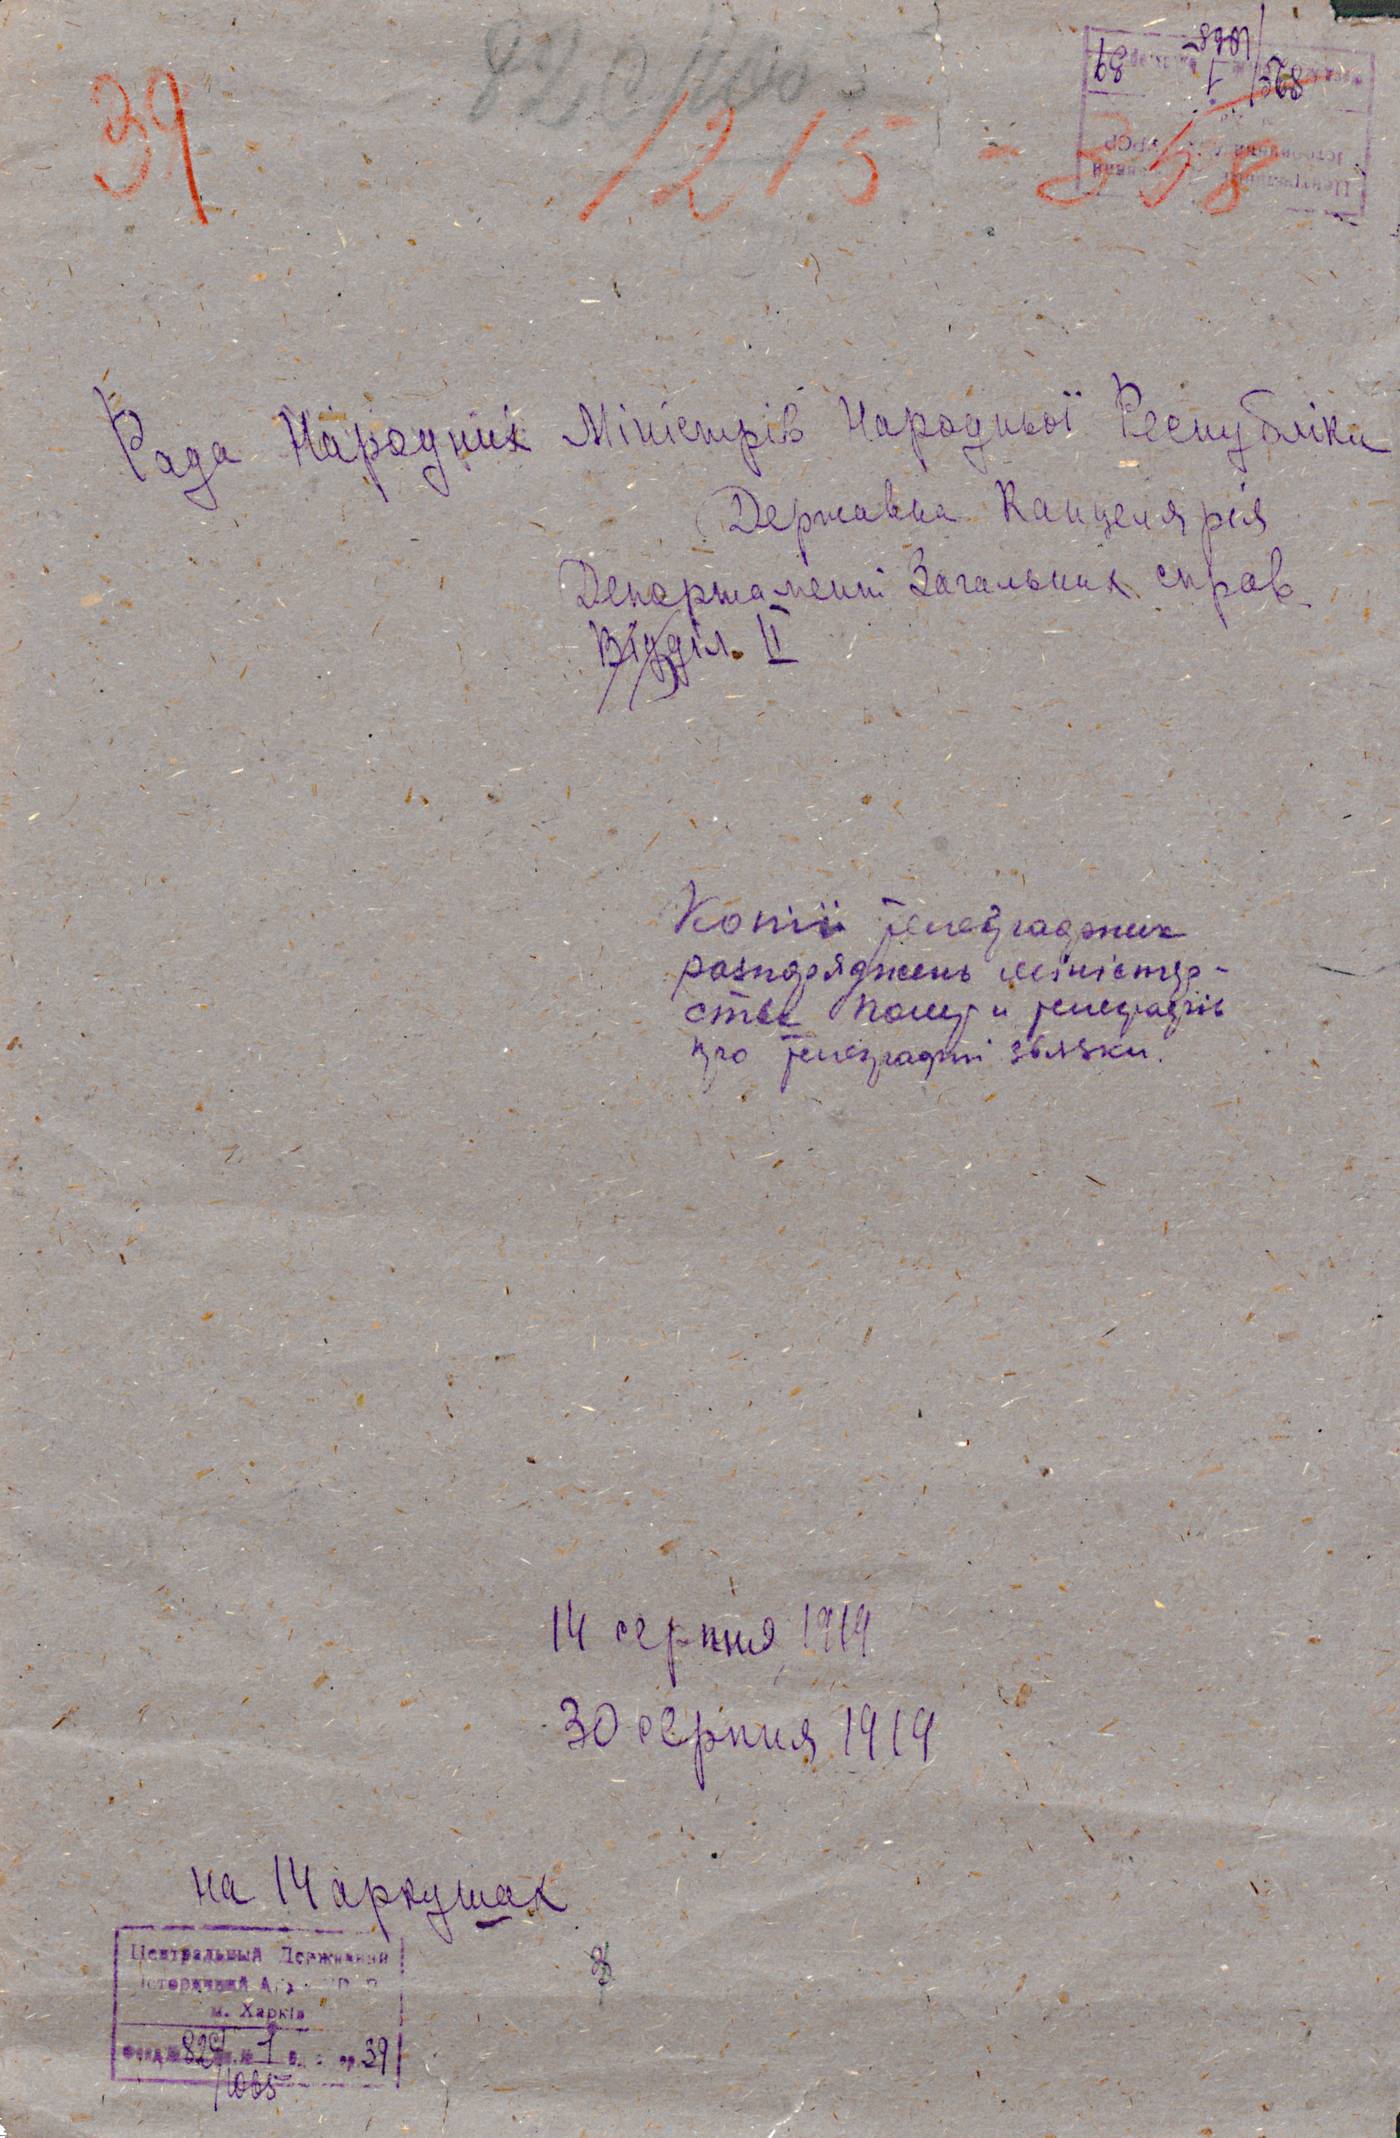 39
1215 - 358
Рада Народних Міністрів Народньої Республіки
Державна Канцелярія
Департамент Загальних справ
Відділ II
Копії телеграфних
розпоряджень міністер-
ства пошт и телеграфів
про телеграфні звязки.
14 серпня 1919
30 серпня 1919
на 14 аркушах
Центральный Державний
Історичний
м. Харків
Фонд № 829 1 39
1065